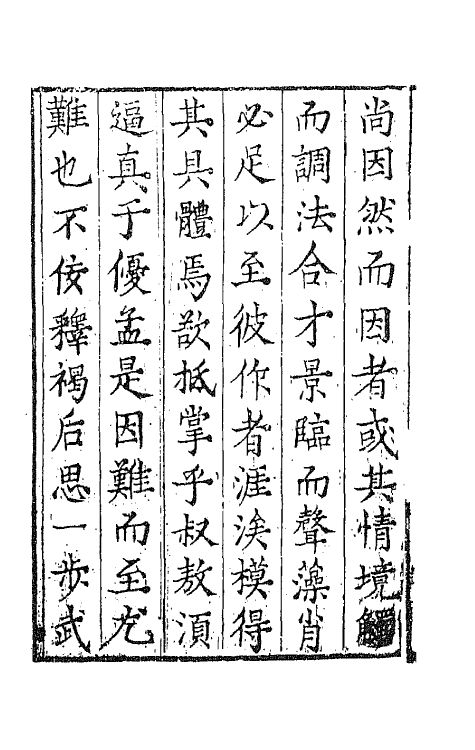 尚因然而因者或其情境觸
而調法合才景臨而聲藻肖
必足以至彼作者涯涘模得
其具體焉欲抵掌乎叔敖須
逼真于優孟是因難而至尤
難也不佞釋褐后思一步武